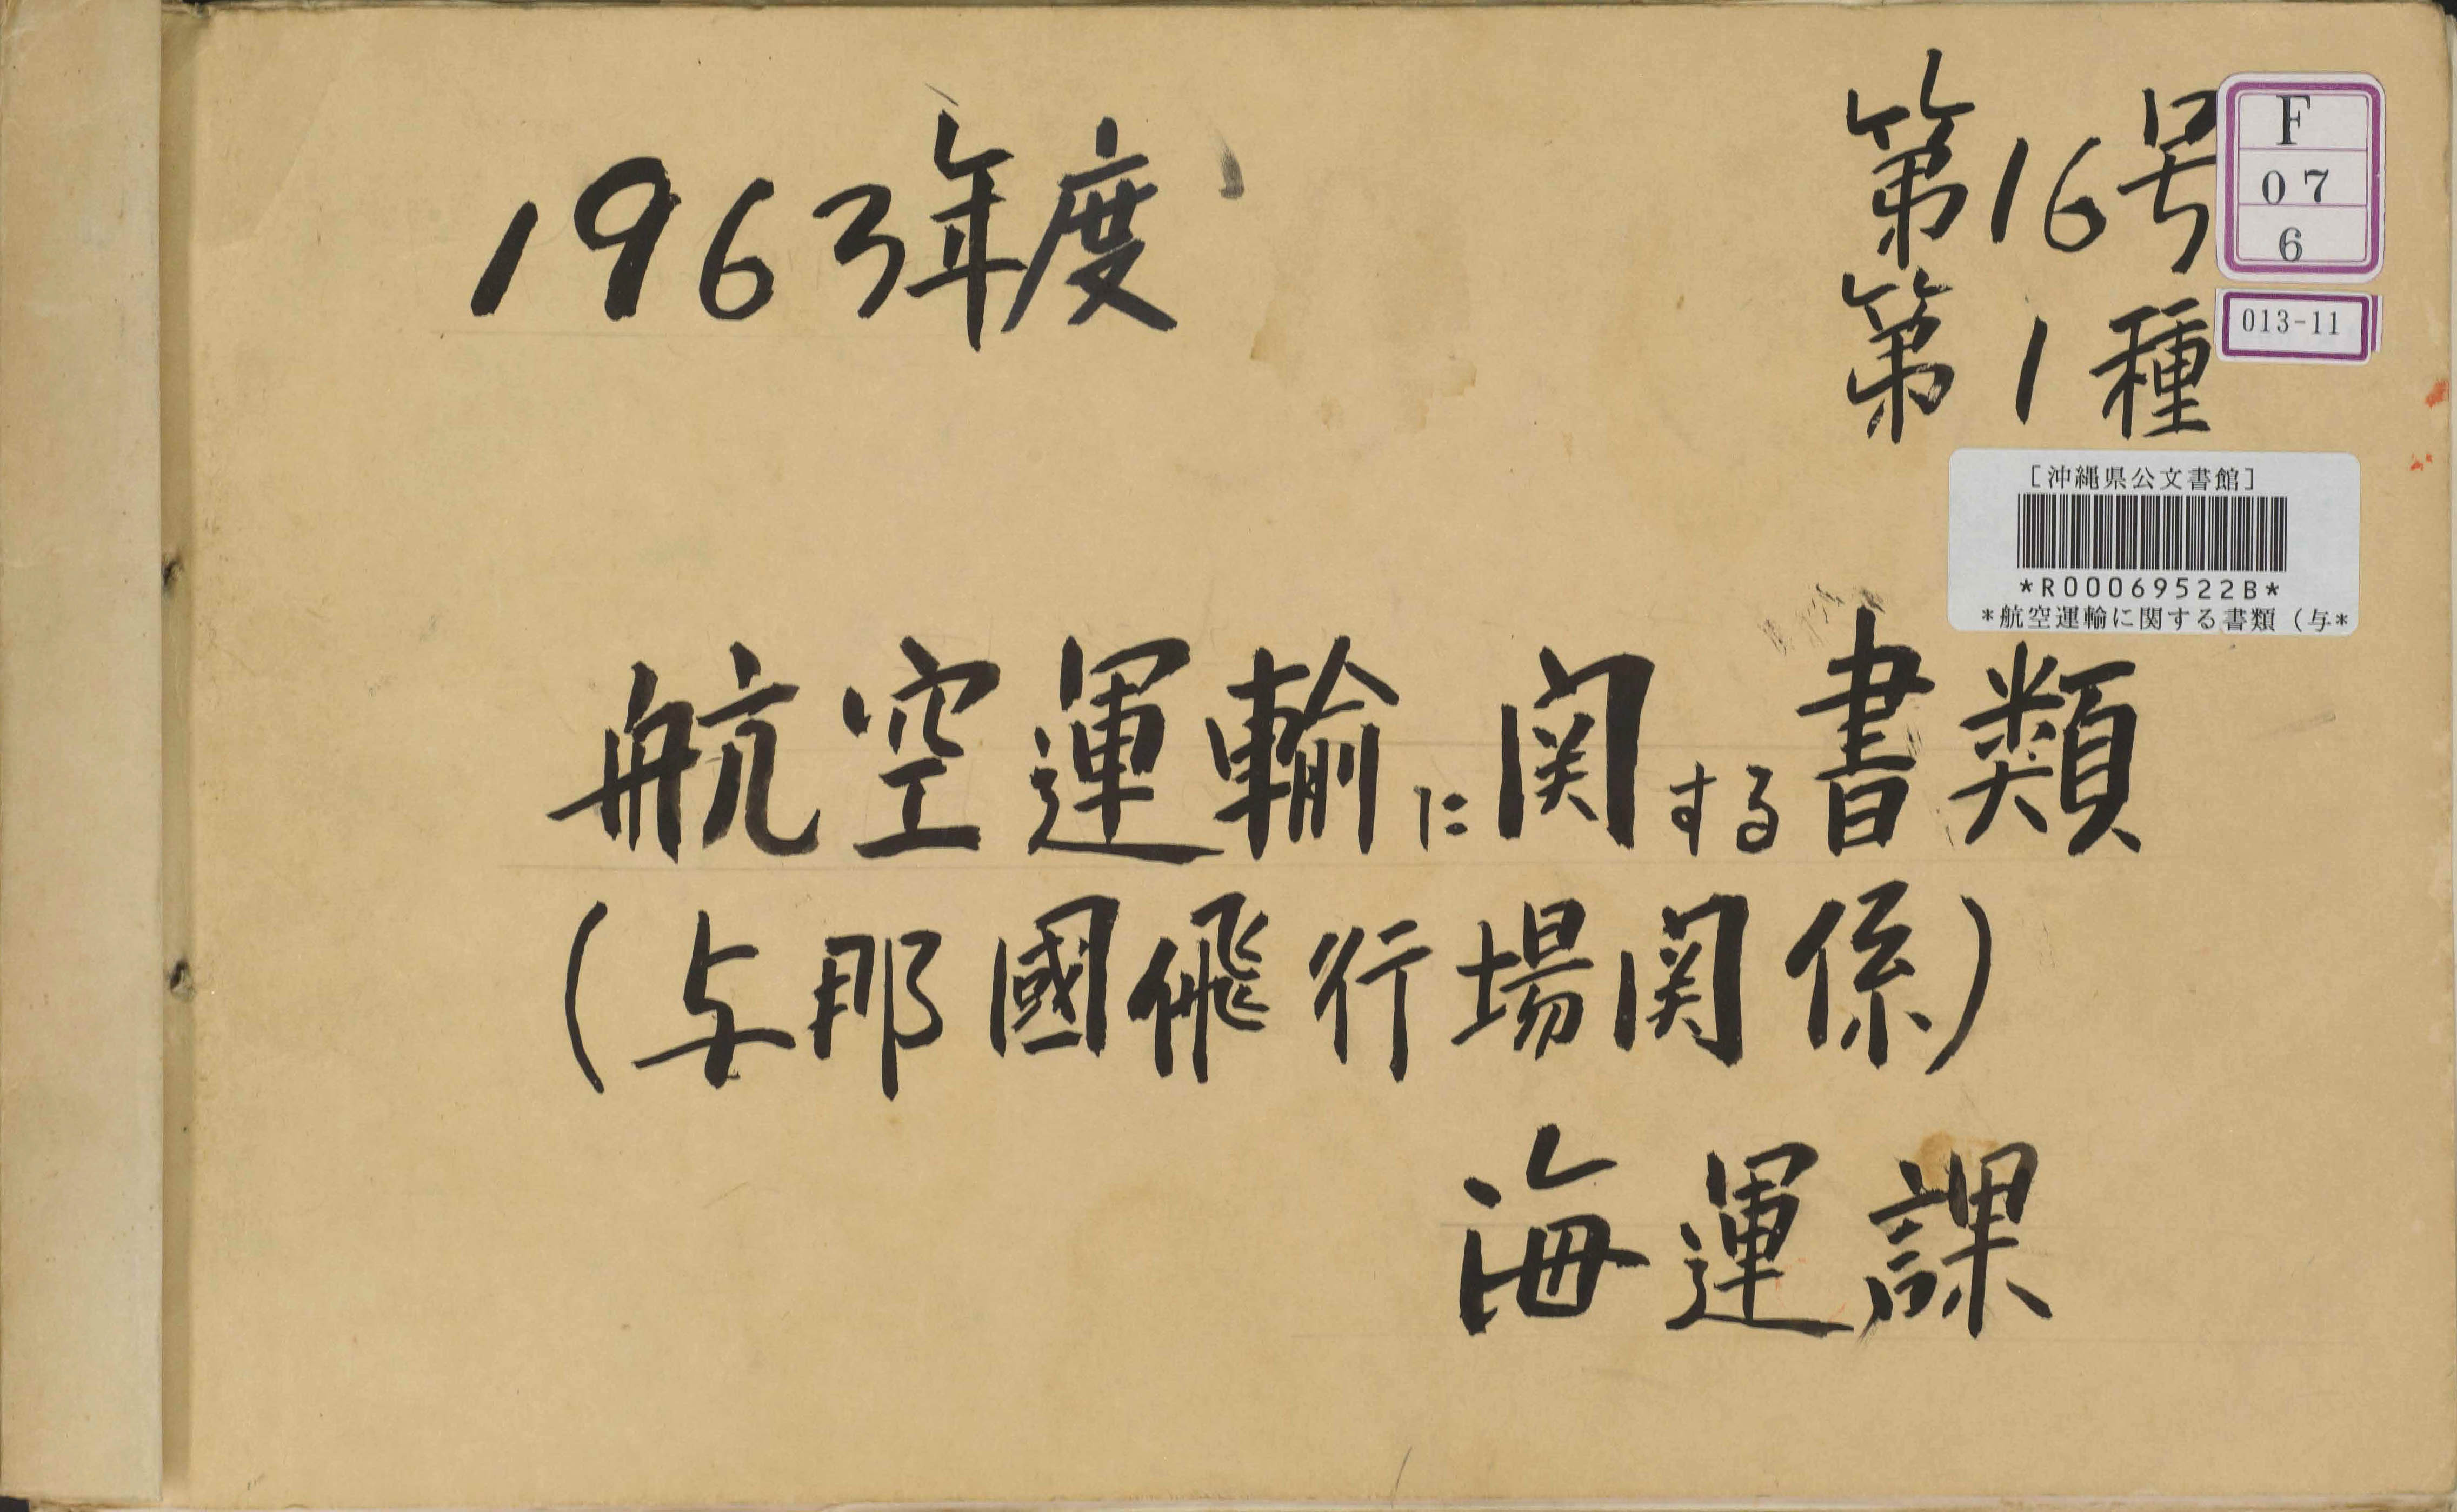 1963年度
第16号
第1種
F
07
6
013-11
[沖縄県公文書館]
*R00069522B*
*航空運輸に関する書類(与*
航空運輸に関する書類
(与那國飛行場関係)
海運課